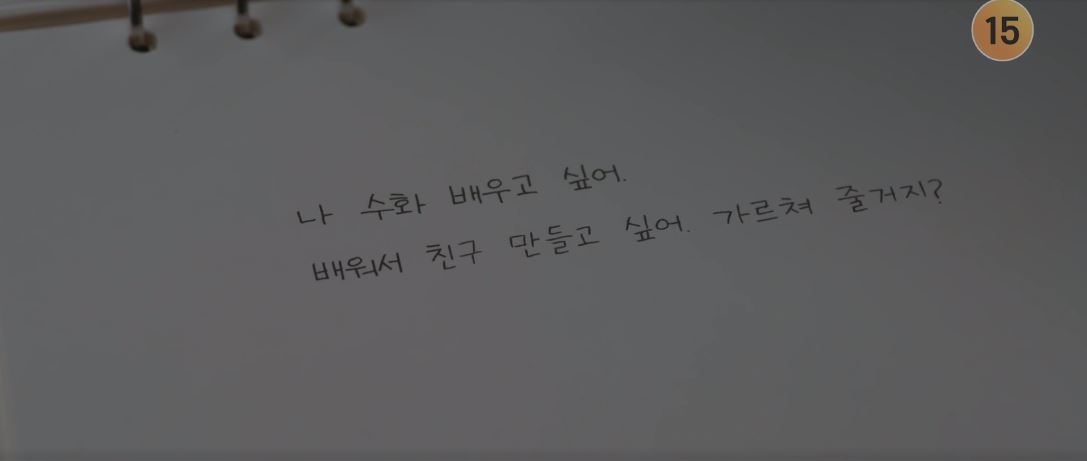 15
나 수화 배우고 싶어.
배워서 친구 만들고 싶어. 가르쳐 줄거지?